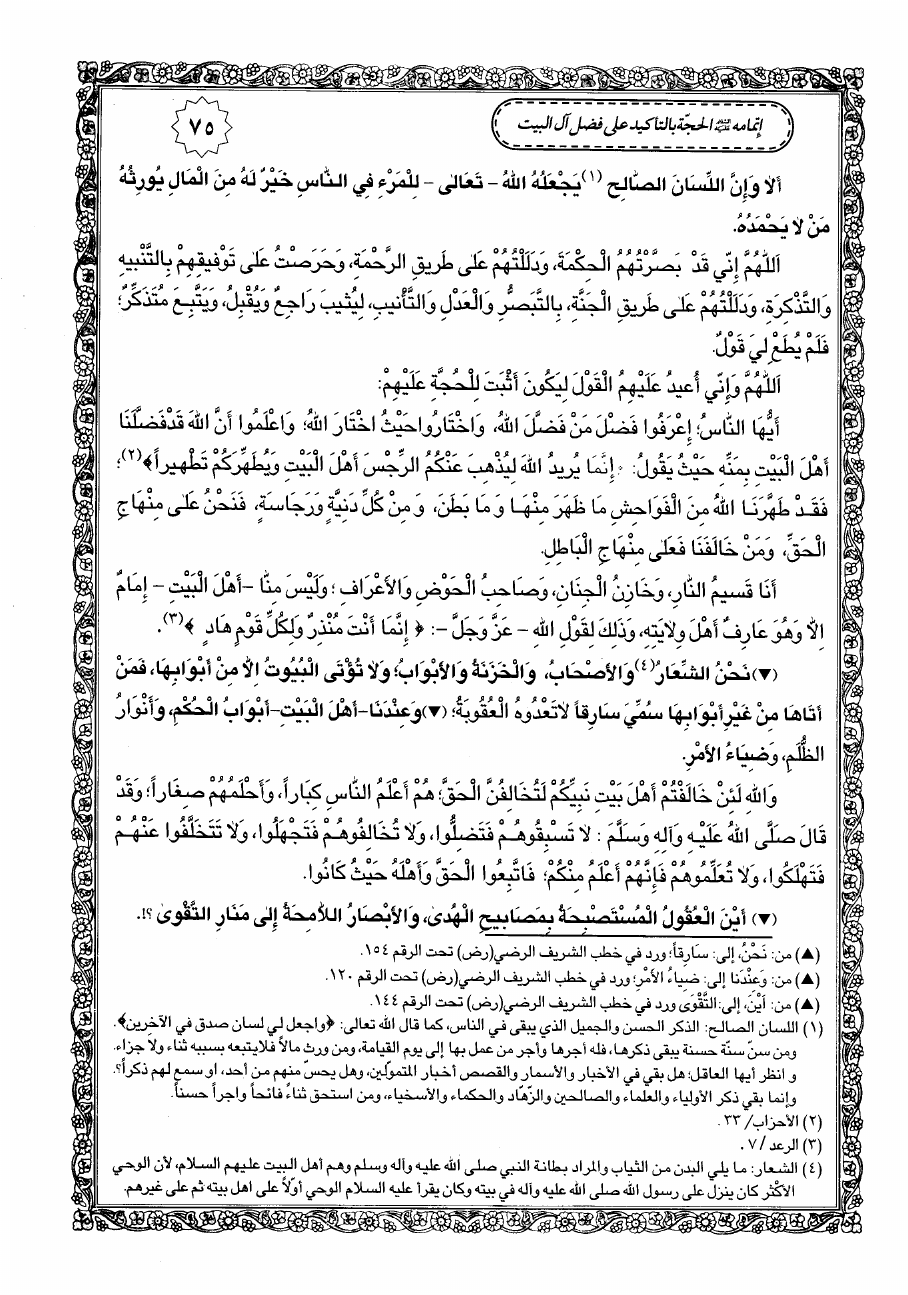 إتمامه عليه السلام الحجّة بالتأكيد على فضل آل البيت
٧٥
أَلَا وَإِنَّ اللِّسَانَ الصَّالِحَ (١) يَجْعَلُهُ اللهُ - تَعَالىٰ - لِلْمَرْءِ فِي النَّاسِ خَيْرٌ لَهُ مِنَ الْمَالِ يُورِثُهُ
مَنْ لَا يَحْمَدُهُ.
اَللّٰهُمَّ إِنّي قَدْ بَصَّرْتُهُمُ الْحِكْمَةَ، وَدَلَلْتُهُمْ عَلىٰ طَريقِ الرَّحْمَةِ، وَحَرَصْتُ عَلىٰ تَوْفيقِهِمْ بِالتَّنْبيهِ
وَالتَّذْكِرَةِ، وَدَلَلْتُهُمْ عَلىٰ طَريقِ الْجَنَّةِ، بِالتَّبَصُّرِ وَالْعَدْلِ وَالتَّأْنيبِ، لِيُثيبَ رَاجِعٌ وَيُقْبِلَ، وَيَتَّبِعَ مُتَذَكِّرٌ؛
فَلَمْ يُطَعْ لِيَ قَوْلٌ.
اَللّٰهُمَّ وَإِنّي أُعيدُ عَلَيْهِمُ الْقَوْلَ لِيَكُونَ أَثْبَتَ لِلْحُجَّةِ عَلَيْهِمْ:
أَيُّهَا النَّاسُ؛ إِعْرَفُوا فَضْلَ مَنْ فَضَّلَ اللهُ، وَاخْتَارُوا حَيْثُ اخْتَارَ اللهُ؛ وَاعْلَمُوا أَنَّ اللهَ قَدْ فَضَّلَنَا
أَهْلَ الْبَيْتِ بِمَنِّهِ حَيْثُ يَقُولُ: ﴿إِنَّمَا يُريدُ اللهُ لِيُذْهِبَ عَنْكُمُ الرِّجْسَ أَهْلَ الْبَيْتِ وَيُطَهِّرَكُمْ تَطْهيراً﴾(٢)؛
فَقَدْ طَهَّرَنَا اللهُ مِنَ الْفَوَاحِشِ مَا ظَهَرَ مِنْهَا وَمَا بَطَنَ، وَمِنْ كُلِّ دَنِيَّةٍ وَرَجَاسَةٍ، فَنَحْنُ عَلىٰ مِنْهَاجِ
الْحَقِّ، وَمَنْ خَالَفَنَا فَعَلىٰ مِنْهَاجِ الْبَاطِلِ.
أَنَا قَسيمُ النَّارِ، وَخَازِنُ الْجِنَانِ، وَصَاحِبُ الْحَوْضِ وَالأَعْرَافِ؛ وَلَيْسَ مِنَّا - أَهْلَ الْبَيْتِ - إِمَامٌ
إِلاَّ وَهُوَ عَارِفٌ أَهْلَ وِلَايَتِهِ، وَذٰلِكَ لِقَوْلِ اللهِ - عَزَّ وَجَلَّ -: ﴿ إِنَّمَا أَنْتَ مُنْذِرٌ وَلِكُلِّ قَوْمٍ هَادٍ ﴾(٣).
(▼) نَحْنُ الشِّعَارُ(٤) وَالأَصْحَابُ، وَالْخَزَنَةُ وَالأَبْوَابُ؛ وَلَا تُؤْتَى الْبُيُوتُ إِلاَّ مِنْ أَبْوَابِهَا، فَمَنْ
أَتَاهَا مِنْ غَيْرِ أَبْوَابِهَا سُمِّيَ سَارِقاً لاَ تَعْدُوهُ الْعُقُوبَةُ؛ (▼) وَعِنْدَنَا - أَهْلَ الْبَيْتِ - أَبْوَابُ الْحُكْمِ، وَأَنْوَارُ
الظُّلَمِ، وَضِيَاءُ الأَمْرِ.
وَاللهِ لَئِنْ خَالَفْتُمْ أَهْلَ بَيْتِ نَبِيِّكُمْ لَتُخَالِفُنَّ الْحَقَّ؛ هُمْ أَعْلَمُ النَّاسِ كِبَاراً، وَأَحْلَمُهُمْ صِغَاراً؛ وَقَدْ
قَالَ صَلَّى اللهُ عَلَيْهِ وَآلِهِ وَسَلَّمَ: لاَ تَسْبِقُوهُمْ فَتَضِلُّوا، وَلاَ تُخَالِفُوهُمْ فَتَجْهَلُوا، وَلاَ تَتَخَلَّفُوا عَنْهُمْ
فَتَهْلَكُوا، وَلاَ تُعَلِّمُوهُمْ فَإِنَّهُمْ أَعْلَمُ مِنْكُمْ؛ فَاتَّبِعُوا الْحَقَّ وَأَهْلَهُ حَيْثُ كَانُوا.
(▼) أَيْنَ الْعُقُولُ الْمُسْتَصْبِحَةُ بِمَصَابيحِ الْهُدىٰ، وَالأَبْصَارُ اللاَّمِحَةُ إِلىٰ مَنَارِ التَّقْوىٰ ؟!.
(▲) من: نَحْنُ، إلى: سَارِقاً؛ ورد في خطب الشريف الرضي (رض) تحت الرقم ١٥٤.
(▲) من: وَعِنْدَنَا إلى: ضِيَاءُ الأَمْرِ؛ ورد في خطب الشريف الرضي (رض) تحت الرقم ١٢٠.
(▲) من: أَيْنَ، إلى: التَّقْوىٰ ورد في خطب الشريف الرضي (رض) تحت الرقم ١٤٤.
(١) اللسان الصالح: الذكر الحسن والجميل الذي يبقى في الناس، كما قال الله تعالى: ﴿واجعل لي لسان صدق في الآخرين﴾.
ومن سنّ سنّة حسنة يبقى ذكرها، فله أجرها وأجر من عمل بها إلى يوم القيامة، ومن ورث مالاً فلا يتبعه بسببه ثناء ولا جزاء.
و انظر أيها العاقل؛ هل بقي في الأخبار والأسمار والقصص أخبار المتموّلين، وهل يحسّ منهم من أحد، او سمع لهم ذكراً؟.
وإنما بقي ذكر الأولياء والعلماء والصالحين والزهّاد والحكماء والأسخياء، ومن استحق ثناءً فائحاً واجراً حسناً.
(٢) الأحزاب/ ٣٣.
(٣) الرعد / ٧ .
(٤) الشعار: ما يلي البدن من الثياب والمراد بطانة النبي صلى الله عليه وآله وسلم وهم أهل البيت عليهم السلام، لأن الوحي
الأكثر كان ينزل على رسول الله صلى الله عليه وآله في بيته وكان يقرأ عليه السلام الوحي أولاً على اهل بيته ثم على غيرهم.